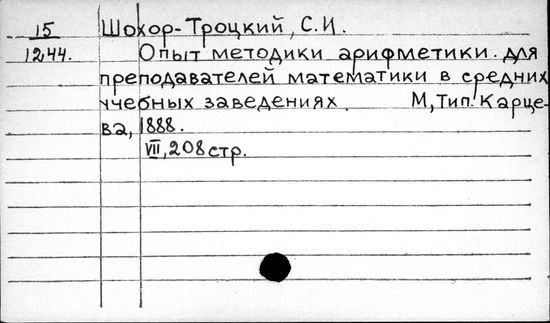 15 Шохор-Троцкий, С.И.
1244. Опыт методики арифметики для
преподавателей математики в средних
учебных заведениях. М, Тип. Карце-
ва, 1888.
VII, 208 стр.